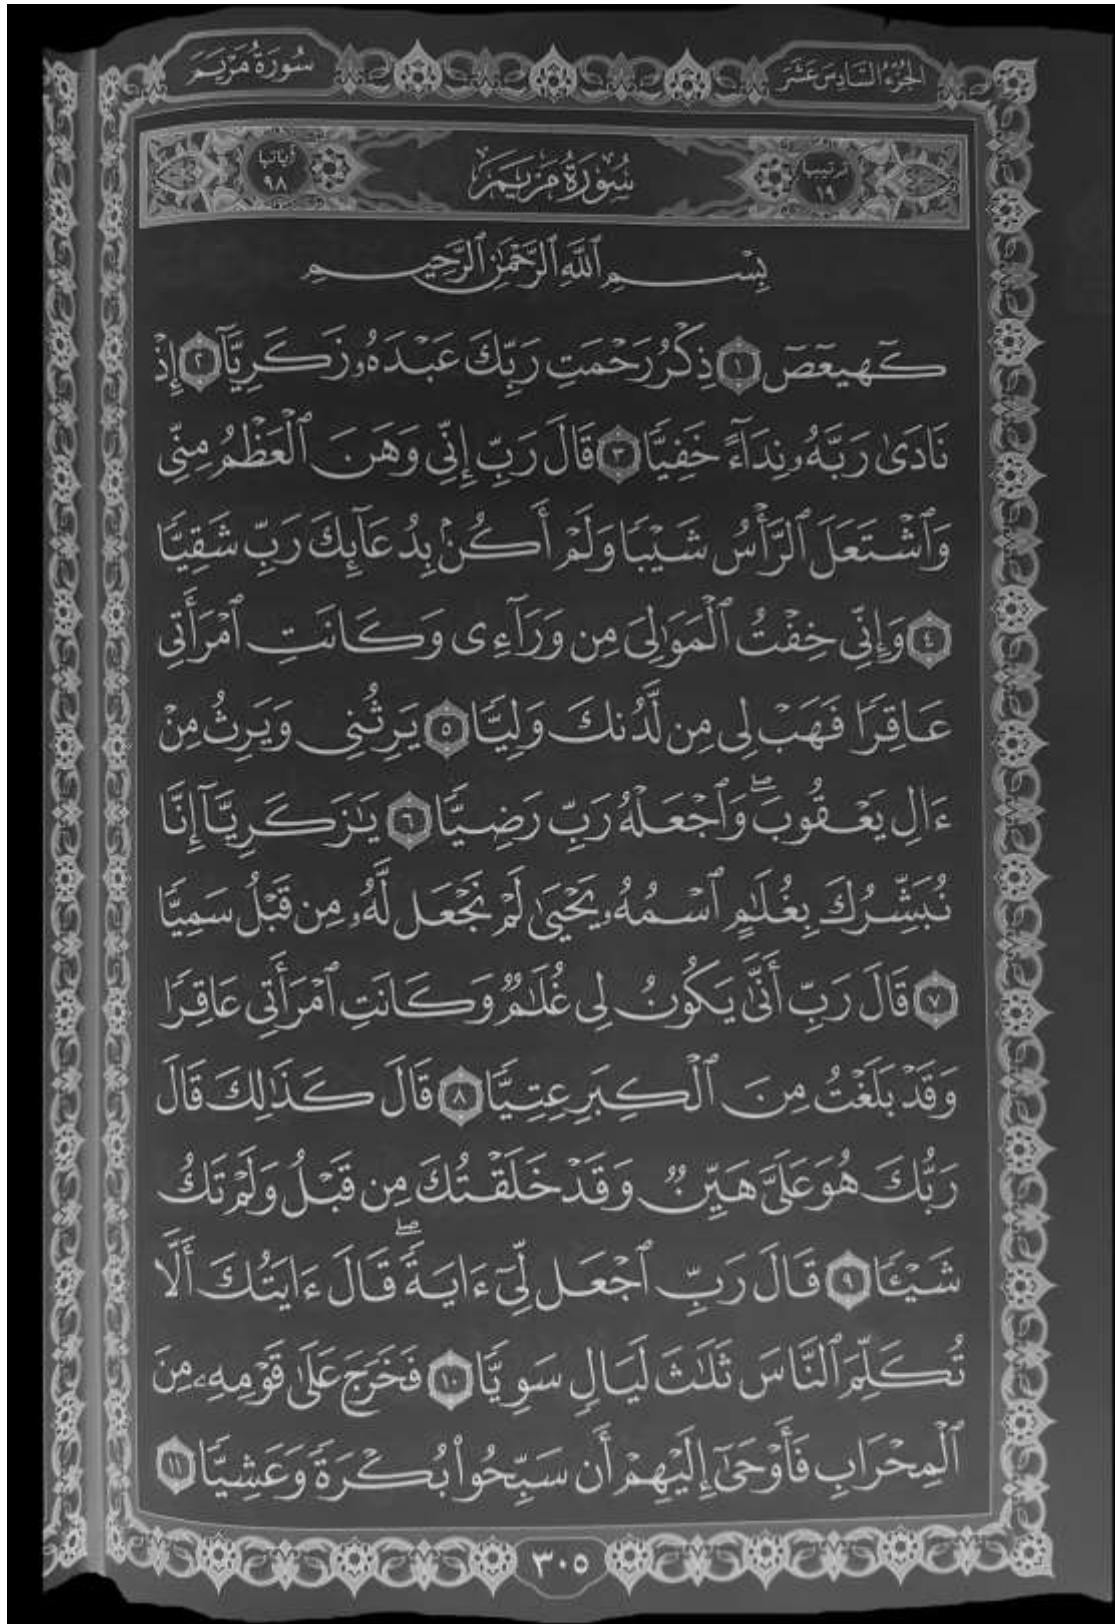 الجزء السادس عشر
سورة مريم
ترتيبها ١٩
سُورَةُ مَرْيَمَ
آياتها ٩٨
بِسْمِ ٱللَّهِ ٱلرَّحْمَٰنِ ٱلرَّحِيمِ
كٓهيعٓصٓ ١ ذِكْرُ رَحْمَتِ رَبِّكَ عَبْدَهُۥ زَكَرِيَّآ ٢ إِذْ
نَادَىٰ رَبَّهُۥ نِدَآءً خَفِيًّا ٣ قَالَ رَبِّ إِنِّى وَهَنَ ٱلْعَظْمُ مِنِّى
وَٱشْتَعَلَ ٱلرَّأْسُ شَيْبًا وَلَمْ أَكُنۢ بِدُعَآئِكَ رَبِّ شَقِيًّا
٤ وَإِنِّى خِفْتُ ٱلْمَوَٰلِىَ مِن وَرَآءِى وَكَانَتِ ٱمْرَأَتِى
عَاقِرًا فَهَبْ لِى مِن لَّدُنكَ وَلِيًّا ٥ يَرِثُنِى وَيَرِثُ مِنْ
ءَالِ يَعْقُوبَ ۖ وَٱجْعَلْهُ رَبِّ رَضِيًّا ٦ يَٰزَكَرِيَّآ إِنَّا
نُبَشِّرُكَ بِغُلَٰمٍ ٱسْمُهُۥ يَحْيَىٰ لَمْ نَجْعَل لَّهُۥ مِن قَبْلُ سَمِيًّا
٧ قَالَ رَبِّ أَنَّىٰ يَكُونُ لِى غُلَٰمٌ وَكَانَتِ ٱمْرَأَتِى عَاقِرًا
وَقَدْ بَلَغْتُ مِنَ ٱلْكِبَرِ عِتِيًّا ٨ قَالَ كَذَٰلِكَ قَالَ
رَبُّكَ هُوَ عَلَىَّ هَيِّنٌ وَقَدْ خَلَقْتُكَ مِن قَبْلُ وَلَمْ تَكُ
شَيْـًٔا ٩ قَالَ رَبِّ ٱجْعَل لِّىٓ ءَايَةً ۖ قَالَ ءَايَتُكَ أَلَّا
تُكَلِّمَ ٱلنَّاسَ ثَلَٰثَ لَيَالٍ سَوِيًّا ١٠ فَخَرَجَ عَلَىٰ قَوْمِهِۦ مِنَ
ٱلْمِحْرَابِ فَأَوْحَىٰٓ إِلَيْهِمْ أَن سَبِّحُوا۟ بُكْرَةً وَعَشِيًّا ١١
٣٠٥